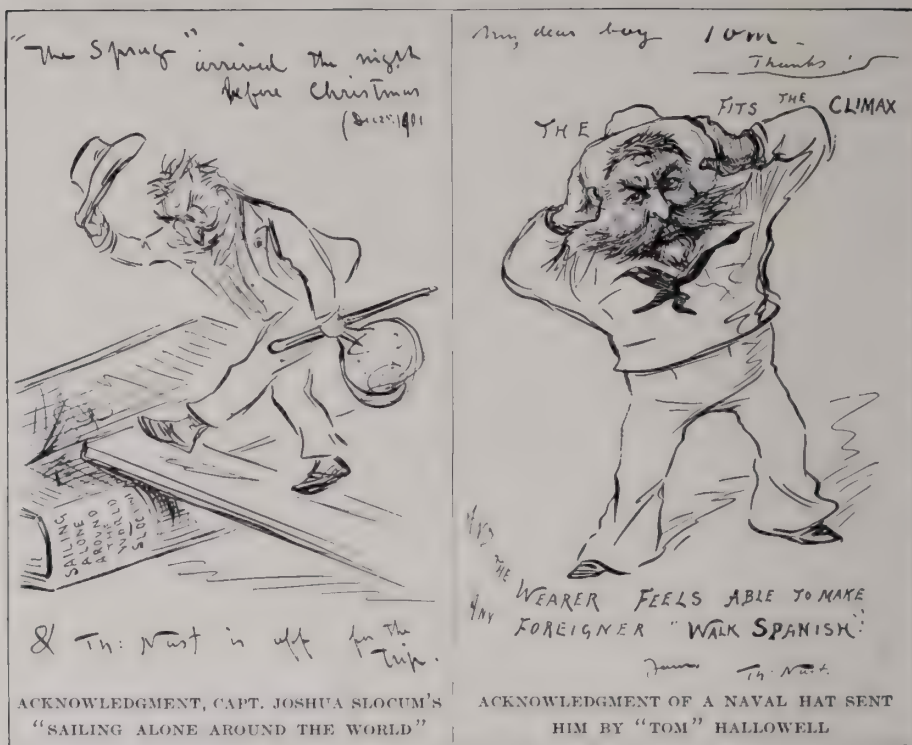 "The Spray" arrived the night
before Christmas
(Dec 25. 1901
SAILING
ALONE
AROUND
THE
WORLD
SLOCUM
& Th: Nast is off for the
Trip.
ACKNOWLEDGMENT, CAPT. JOSHUA SLOCUM'S
"SAILING ALONE AROUND THE WORLD"
My dear boy Tom.
Thanks!
THE FITS THE CLIMAX
AND THE WEARER FEELS ABLE TO MAKE
ANY FOREIGNER "WALK SPANISH".
Th: Nast.
ACKNOWLEDGMENT OF A NAVAL HAT SENT
HIM BY "TOM" HALLOWELL